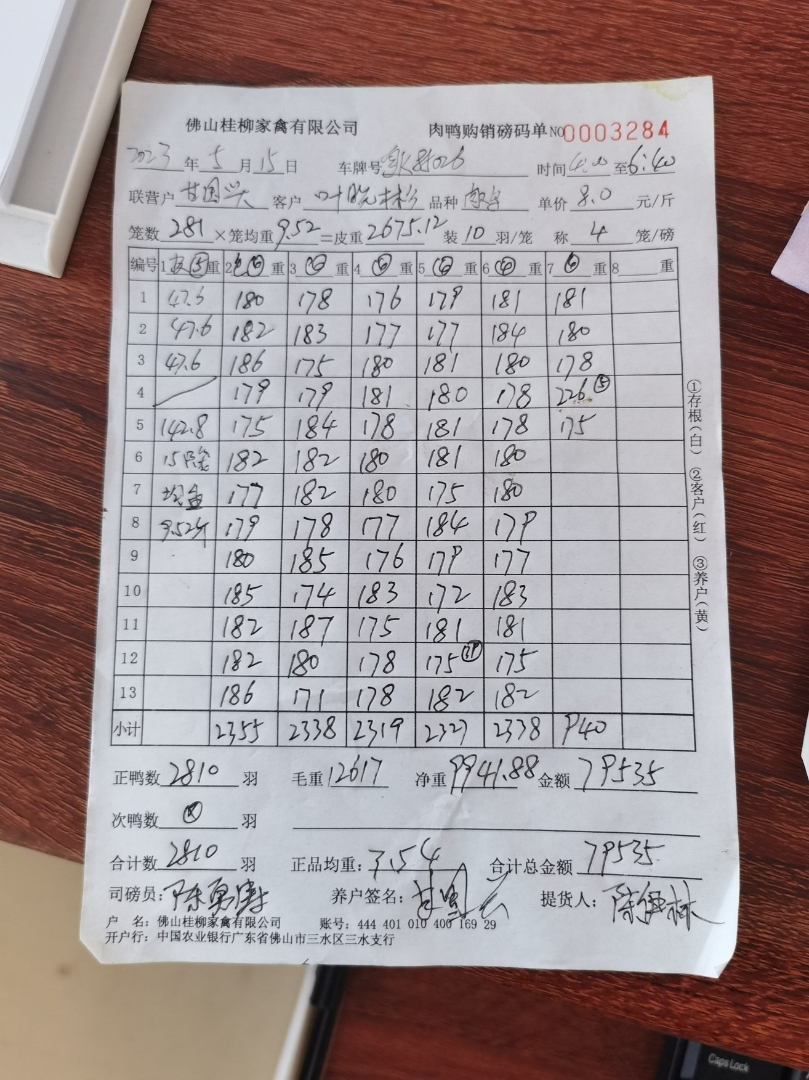 佛山桂柳家禽有限公司 肉鸭购销磅码单 NO 0003284
2023 年 5 月 15 日 车牌号 时间 4:00 至 6:40
联营户 甘国兴 客户 叶晓彬 品种 单价 8.0 元/斤
笼数 281 ×笼均重 9.52 =皮重 2675.12 装 10 羽/笼 称 4 笼/磅
编号 1 皮⑤ 重 2 重 3 重 4 重 5 重 6 重 7 重 8 重
1 47.6 180 178 176 179 181 181
2 47.6 182 183 177 177 184 180
3 47.6 186 175 180 181 180 178
4 179 179 181 180 178 226 ⑤
5 142.8 175 184 178 181 178 175
6 15只笼 182 182 180 181 180
7 均重 177 182 180 175 180
8 9.52斤 179 178 177 184 179
9 180 185 176 179 177
10 185 174 183 172 183
11 182 187 175 181 181
12 182 180 178 175 175
13 186 171 178 182 182
小计 2355 2338 2319 2327 2338 940
①存根(白) ②客户(红) ③养户(黄)
正鸭数 2810 羽 毛重 12617 净重 9941.88 金额 79535
次鸭数 羽
合计数 2810 羽 正品均重: 3.54 合计总金额 79535
司磅员: 养户签名: 提货人:
户 名: 佛山桂柳家禽有限公司 账号: 444 401 010 400 169 29
开户行: 中国农业银行广东省佛山市三水区三水支行
Caps Lock